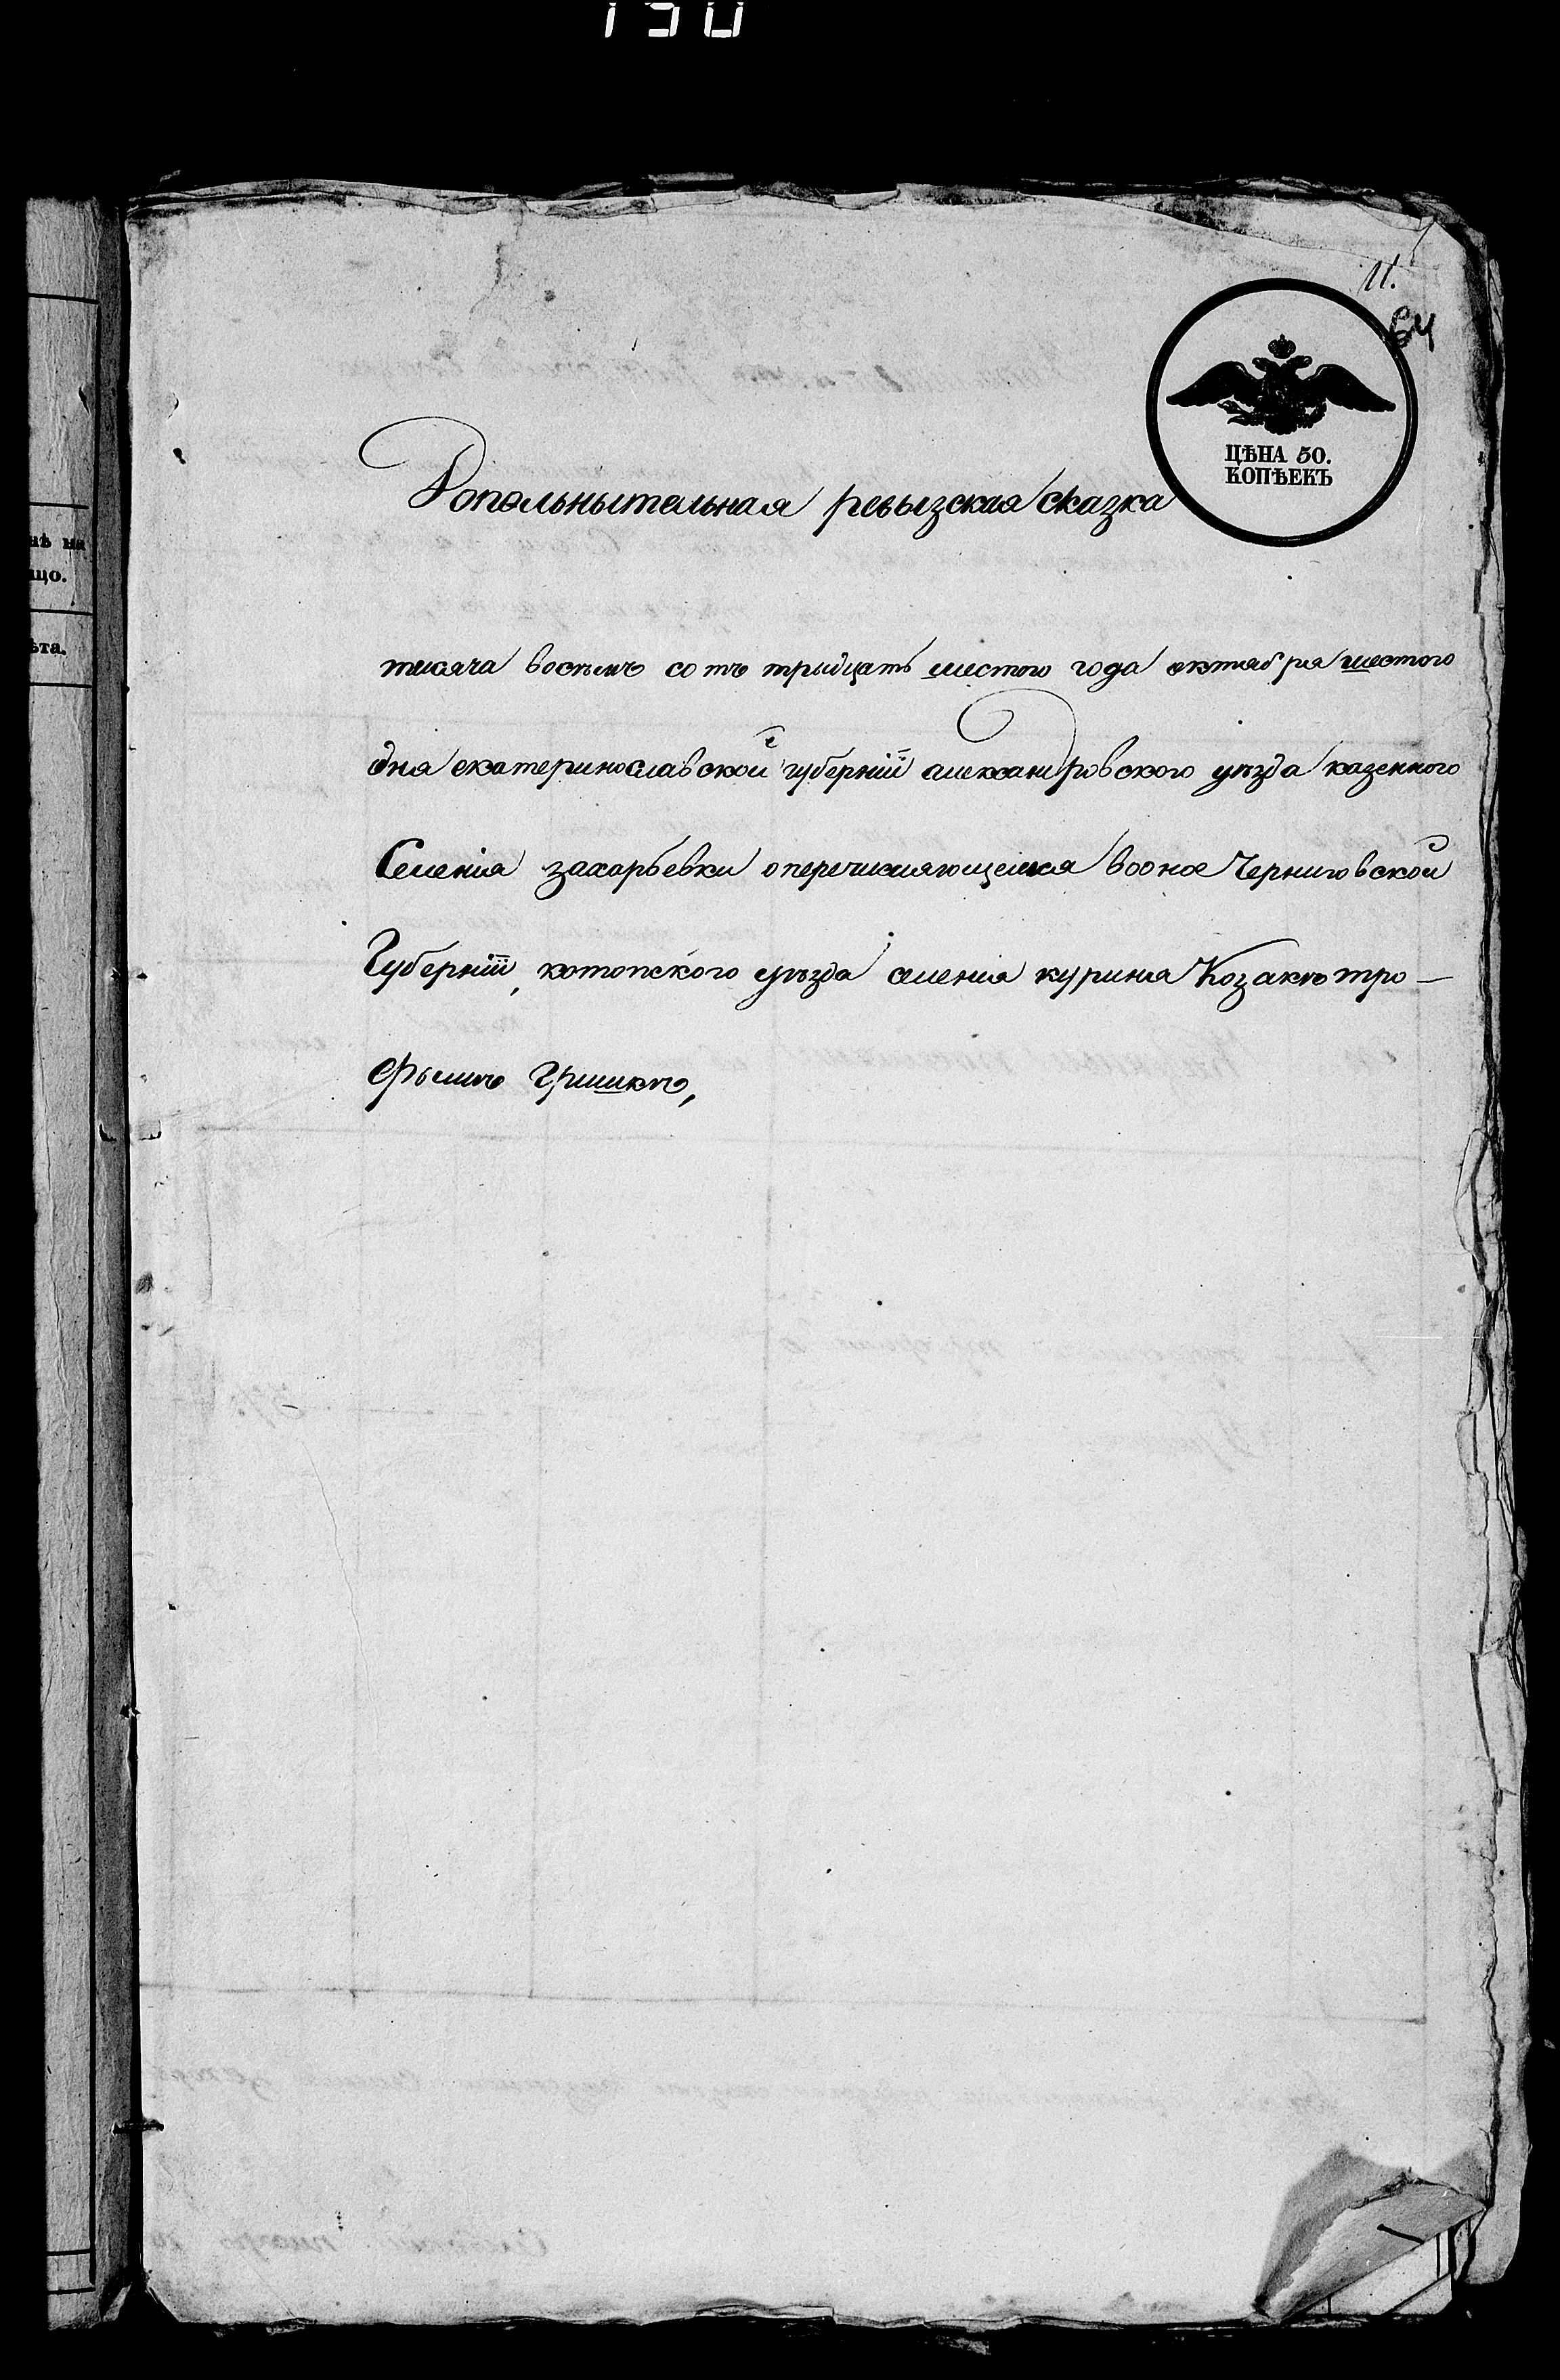 130
11.
64
ЦѢНА 50.
КОПѢЕКЪ
Допольнытельная ревызская сказка
тисяча восѣмъ сотъ трыдцать шестого года октября шестого
дня екатеринославской губерніи александровского уѣзда казенного
Селенія захарьевки о перечисляющемся воное Черниговской
Губерніи, котопского уѣзда селенія куриня Козакѣ тро-
фымѣ Гришкѣ,
нѣ на
ицо.
ѣта.